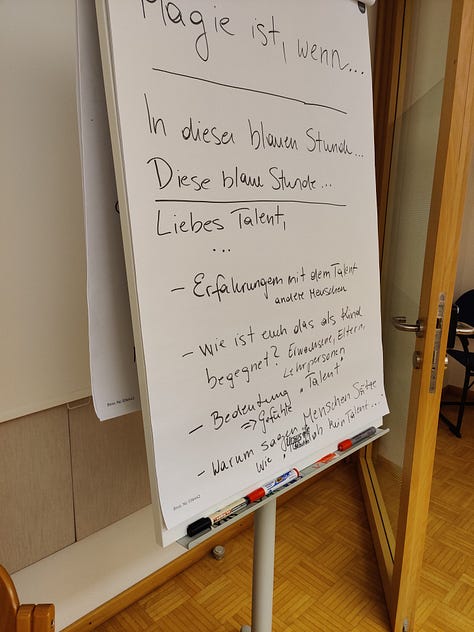 Magie ist, wenn...
In dieser blauen Stunde...
Diese blaue Stunde...
Liebes Talent,
...
- Erfahrungen mit dem Talent
andere Menschen
- Wie ist euch das als Kind
begegnet? Erwachsene, Eltern,
Lehrpersonen
- Bedeutung "Talent"
⇒ Gefühle
- Warum sagen Menschen Sätze
wie "ich hab kein Talent...."